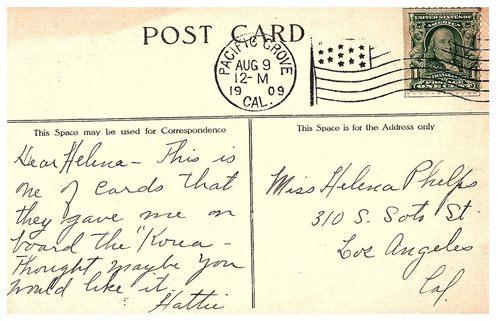 POST CARD
PACIFIC GROVE
AUG 9
12-M
1909
CAL.
UNITED STATES OF AMERICA
ONE CENT
This Space may be used for Correspondence
This Space is for the Address only
Dear Helena - This is
one of cards that
they gave me on
board the "Korea -
Thought maybe you
would like it.
Hattie
Miss Helena Phelps
310 S. Soto St.
Los Angeles
Cal.